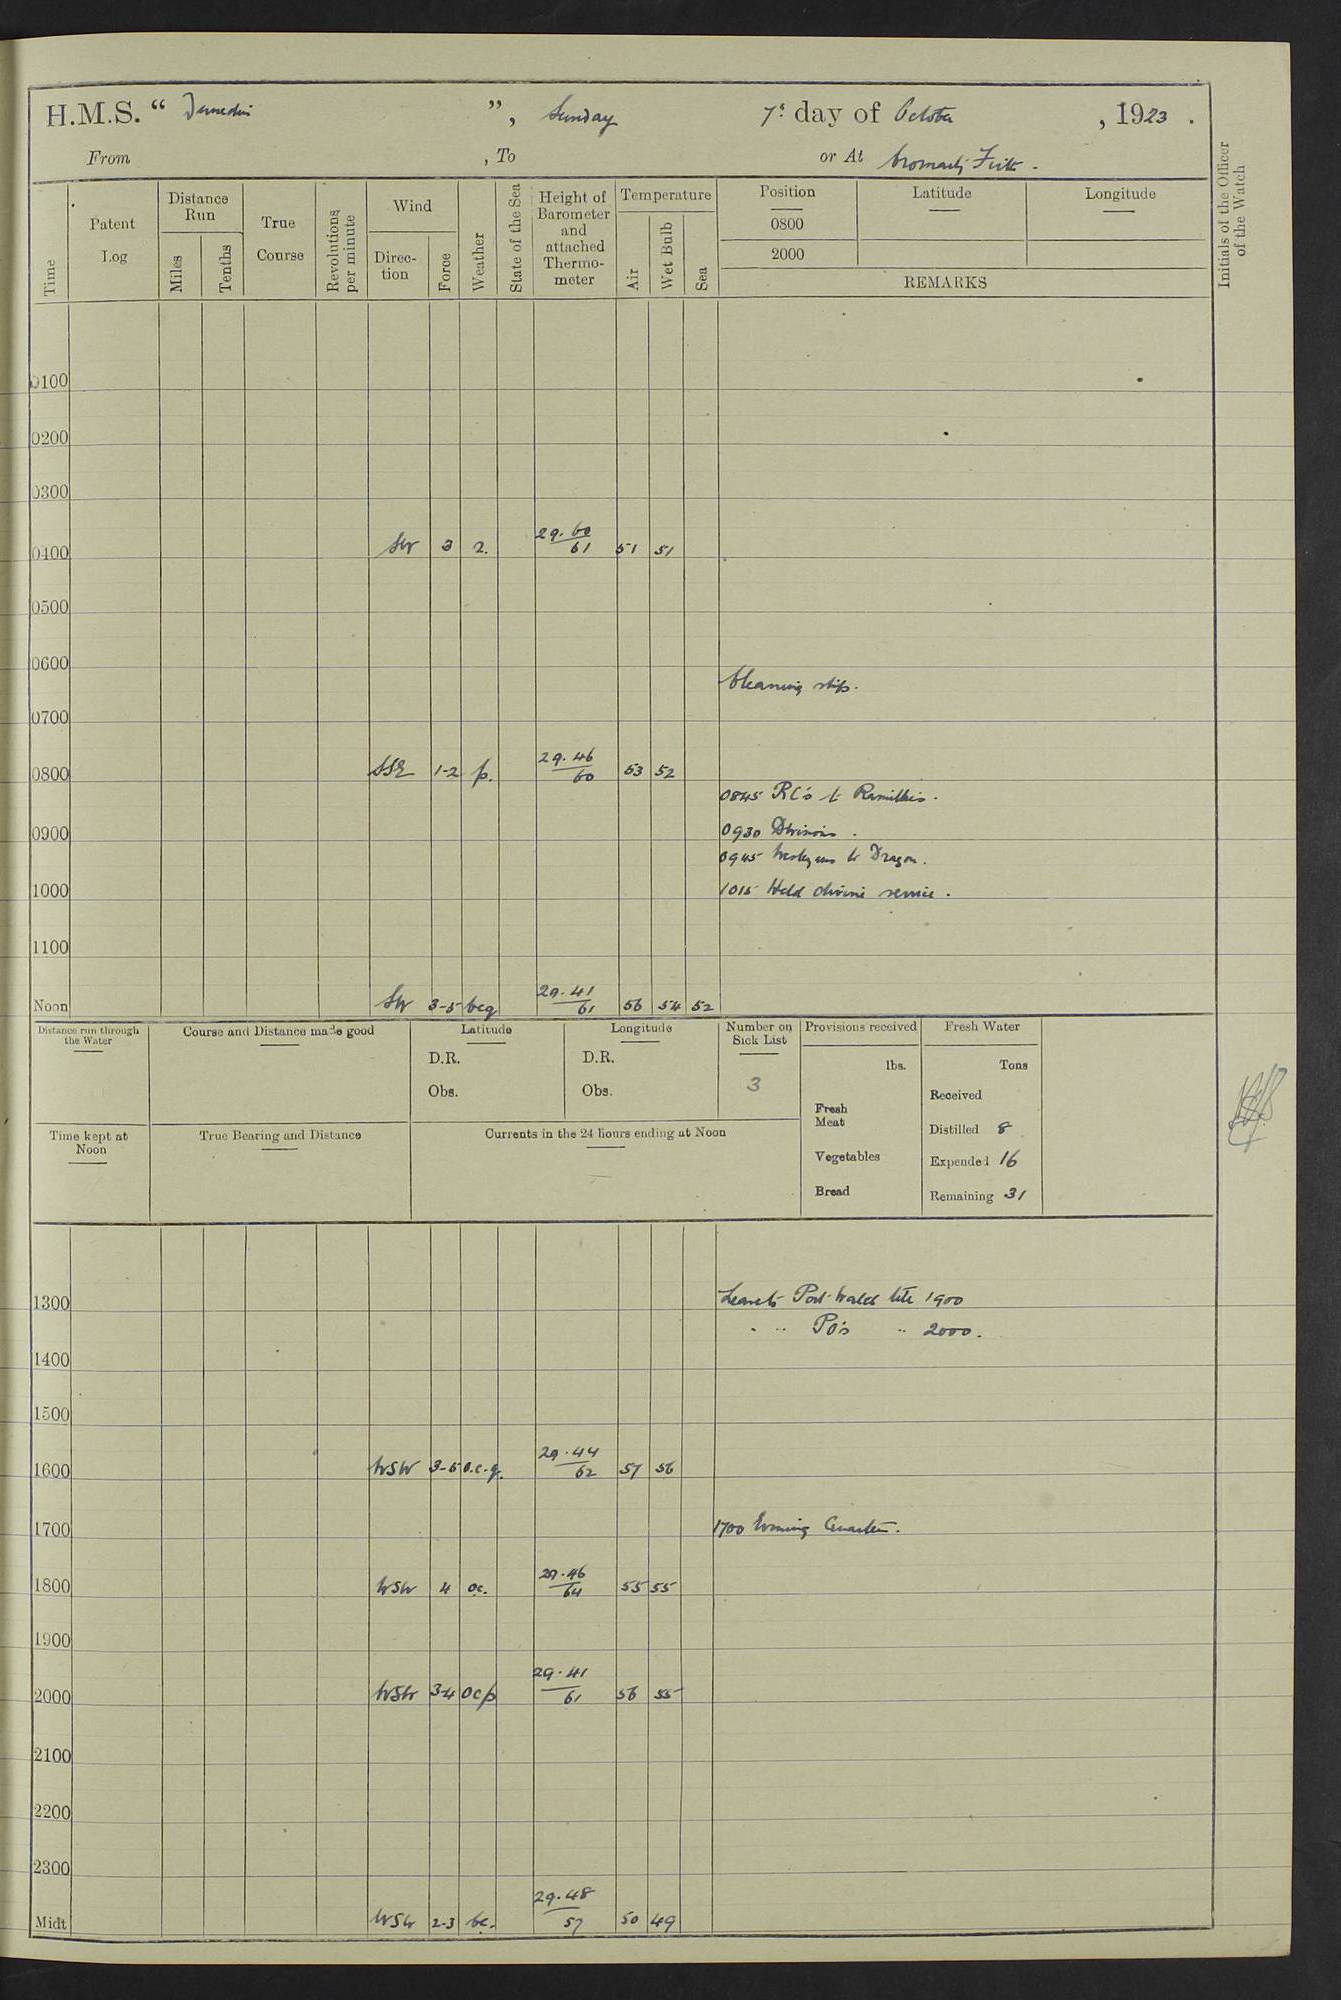 H.M.S. “ Dunedin ”, Sunday 7th day of October , 1923 .
From , To or At Cromarty Firth .
Time
Patent Log
Distance Run
Miles
Tenths
True Course
Revolutions per minute
Wind
Direction
Force
Weather
State of the Sea
Height of Barometer and attached Thermometer
Temperature
Air
Wet Bulb
Sea
Position
0800
2000
Latitude
Longitude
REMARKS
Initials of the Officer of the Watch
0100
0200
0300
0400 SW 3 2. 29.60/61 51 51
0500
0600
Cleaning ship.
0700
0800 SSE 1-2 p. 29.46/60 53 52
0845 RC's to Ramillies.
0930 Divisions.
0900
0945 Wesleyans to Dragon.
1015 Held divine service.
1000
1100
Noon SW 3-5 bcq 29.41/61 56 54 52
Distance run through the Water
Course and Distance made good
Latitude
D.R.
Obs.
Longitude
D.R.
Obs.
Number on Sick List
3
Provisions received
lbs.
Fresh Meat
Vegetables
Bread
Fresh Water
Tons
Received
Distilled 8
Expended 16
Remaining 31
Time kept at Noon
True Bearing and Distance
Currents in the 24 hours ending at Noon
Leave to Port Watch till 1900
1300
" " PO's " 2000.
1400
1500
1600 WSW 3-5 o.c.q. 29.44/62 57 56
1700 1700 Evening Quarters.
1800 WSW 4 oc. 29.46/64 55 55
1900
2000 WSW 3-4 ocp 29.41/61 56 55
2100
2200
2300
Midt WSW 2-3 bc. 29.48/57 50 49